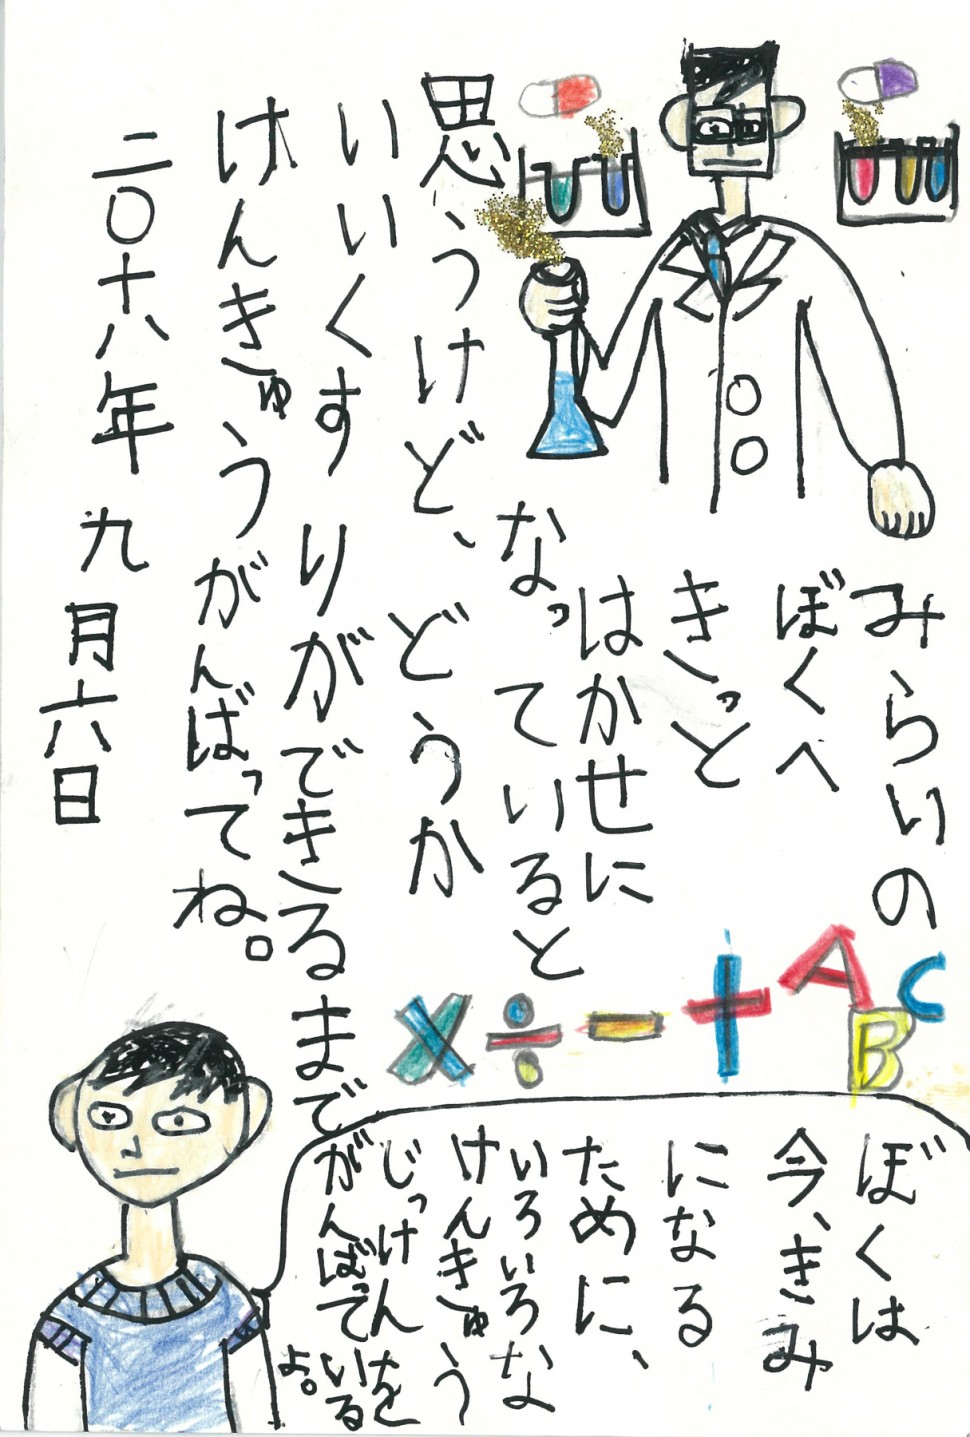 みらいの
ぼくへ
きっと
はかせに
なっていると
思うけど、どうか
いいくすりができるまで
けんきゅうがんばってね。
二〇十八年九月六日
A B C + − ÷ ×
ぼくは
今、きみ
になる
ために、
いろいろな
けんきゅう
じっけんを
がんばている
よ。